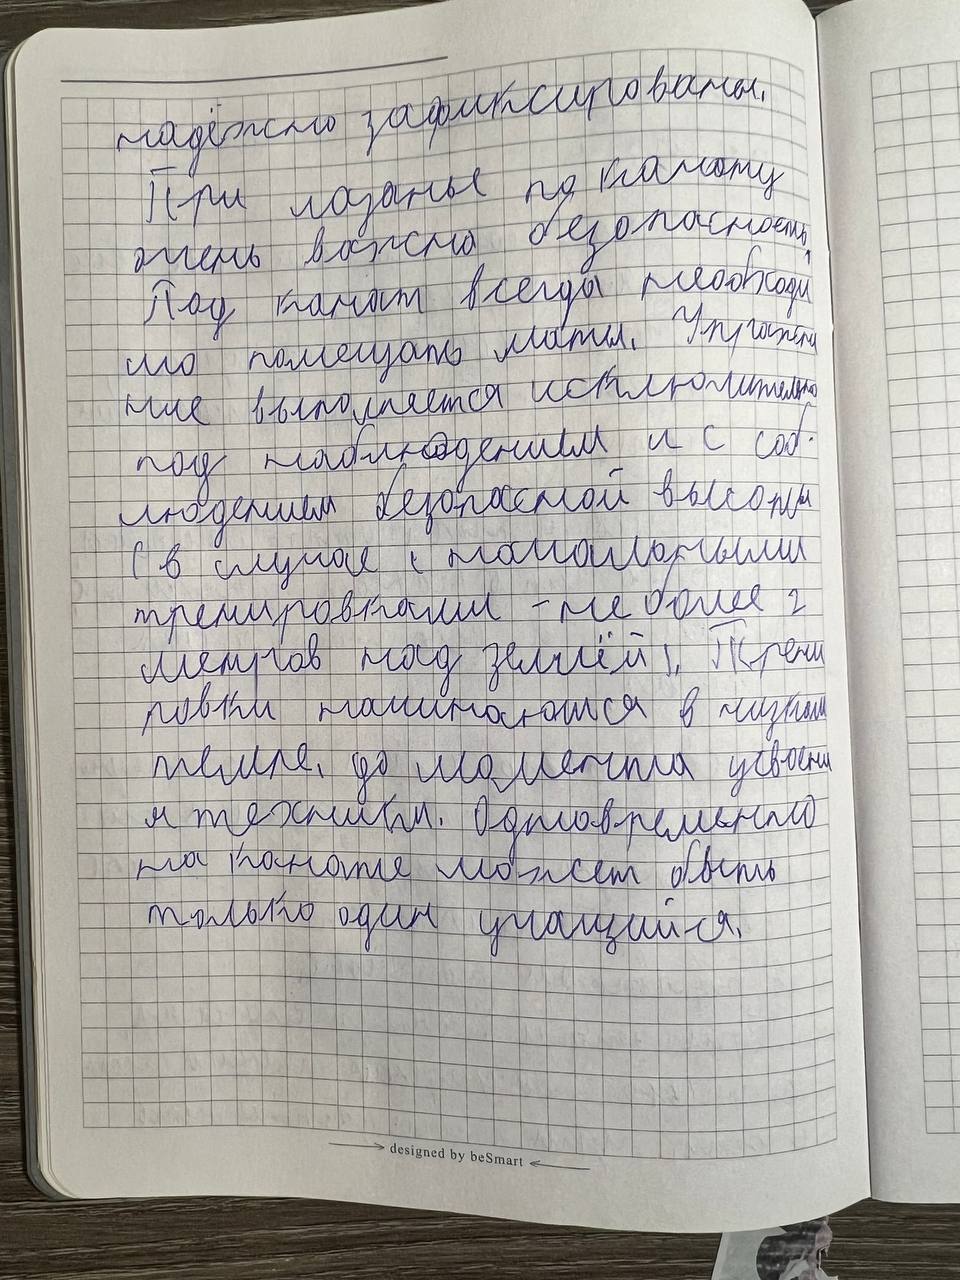 надёжно зафиксированы.
При лазанье по канату
очень важна безопасность,
Под канат всегда необходи
мо помещать маты. Упражне
ние выполняется исключительно
под наблюдением и с соб-
людением безопасной высоты
(в случае с начальными
тренировками - не более 2
метров над землёй). Трени
ровки начинаются в низком
темпе, до момента усвоени
я техники. Одновременно
на канате может быть
только один учащийся.
designed by beSmart